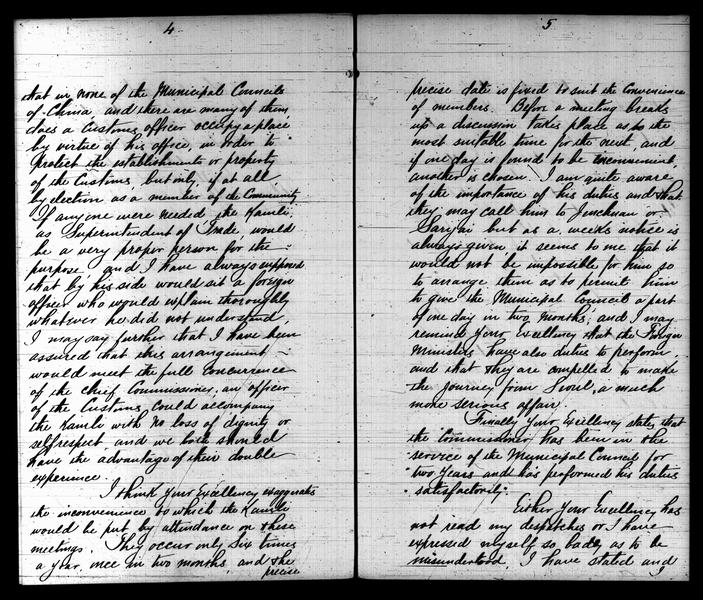 4
that in none of the Municipal Councils
of China and there are many of them,
does a Customs officer occupy a place
by virtue of his office, in order to
protect the establishments or property
of the Customs, but only, if at all
by election as a member of the Community
If anyone were needed the Kamli,
as Superintendent of Trade, would
be a very proper person for the
purpose and I have always supposed
that by his side would sit a foreign
officer who would explain thoroughly
whatever he did not understand,
I may say further that I have been
assured that this arrangement
would meet the full concurrence
of the chief Commissioner, an officer
of the Customs could accompany
the Kamli with no loss of dignity or
self respect and we both should
have the advantage of their double
experience.
I think Your Excellency exagerates
the inconvenience to which the Kamli
would be put by attendance on these
meetings. They occur only six times
a year, once in two months, and the
precise
5
precise date is fixed to suit the convenience
of members. Before a meeting breaks
up a discussion takes place as to the
most suitable time for the next, and
if one day is found to be inconvenient
another is chosen. I am quite aware
of the importance of his duties and that
they may call him to Jinchuan or
but as a weeks notice is
always given it seems to me that it
would not be impossible for him so
to arrange them as to permit him
to give the Municipal Council a part
of one day in two months, and I may
remind Your Excellency that the Foreign
Ministers have also duties to perform,
and that they are compelled to make
the journey from Seoul, a much
more serious affair.
Finally Your Excellency states that
the Commissioner has been in the
service of the Municipal Council for
two years and has performed his duties
"satisfactorily".
Either Your Excellency has
not read my despatches or I have
expressed myself so badly as to be
misunderstood. I have stated and